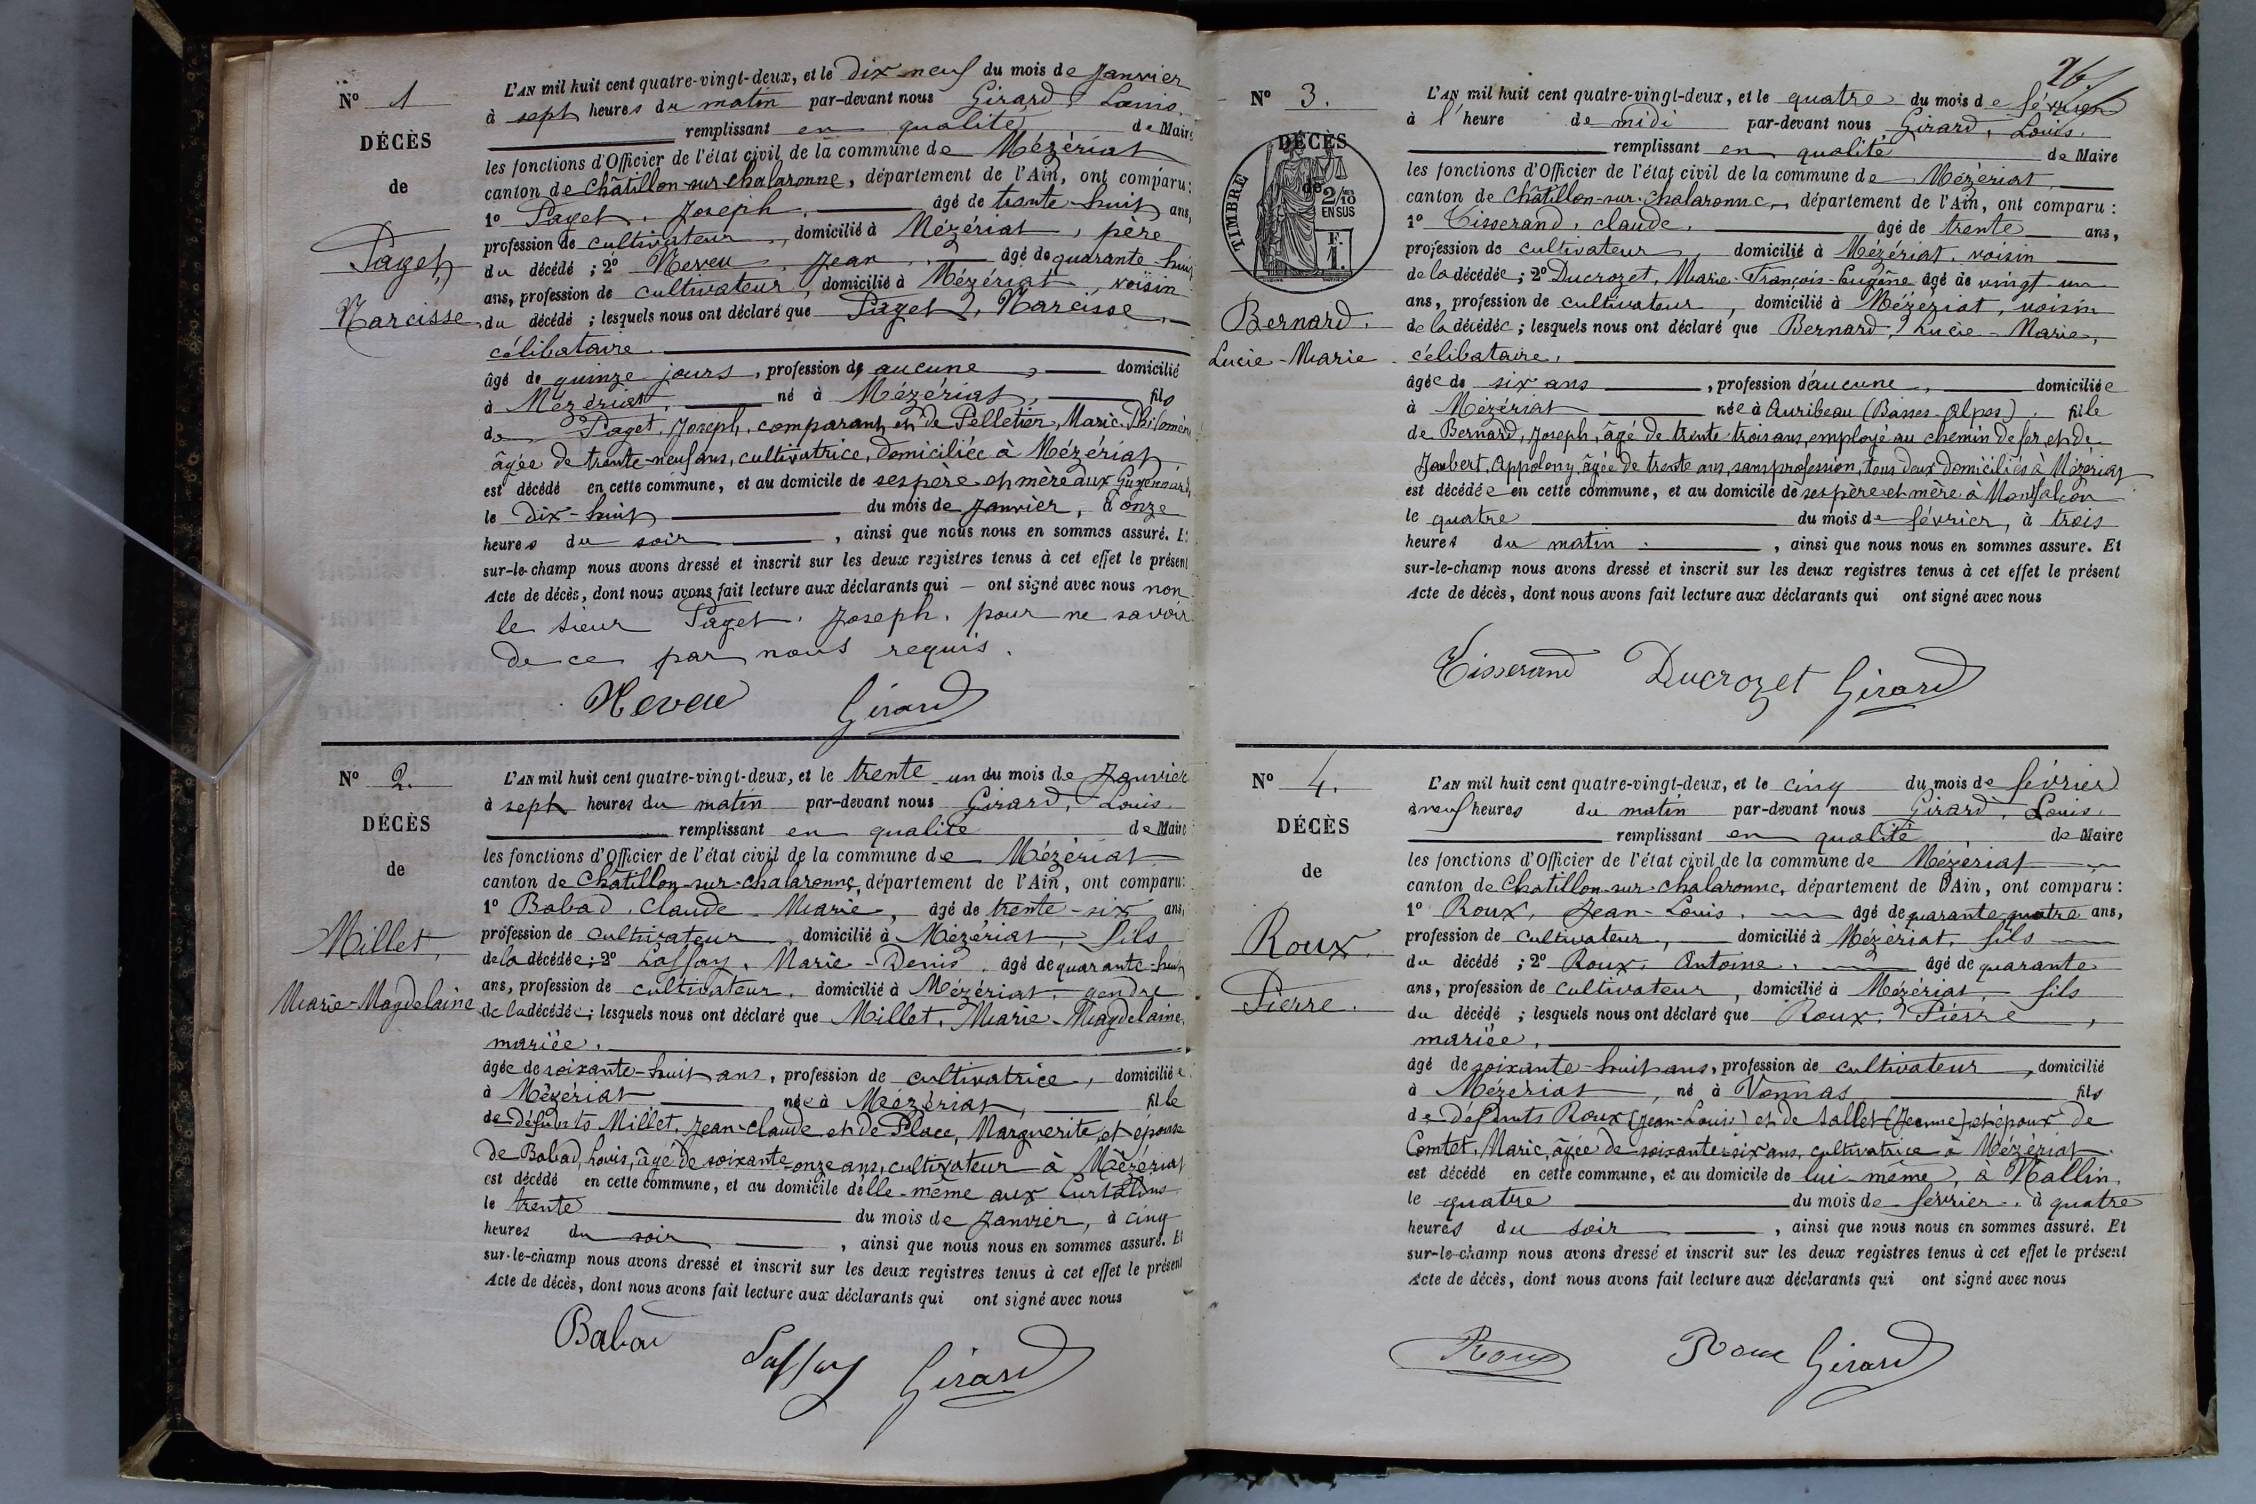 N° 1
DÉCÈS
de
Paget,
Narcisse
L'AN mil huit cent quatre-vingt-deux, et le dix-neuf du mois de Janvier
à sept heures du matin par-devant nous Girard, Louis,
remplissant en qualité de Maire
les fonctions d'Officier de l'état civil de la commune de Mézériat
canton de Châtillon-sur-Chalaronne, département de l'Ain, ont comparu:
1° Paget, Joseph, âgé de trente-huit ans,
profession de cultivateur, domicilié à Mézériat, père
du décédé ; 2° Neveu, Jean, âgé de quarante-huit
ans, profession de cultivateur, domicilié à Mézériat, voisin
du décédé ; lesquels nous ont déclaré que Paget, Narcisse,
célibataire.
âgé de quinze jours, profession de aucune, domicilié
à Mézériat, né à Mézériat, fils
de Paget, Joseph, comparant, et de Pelletier, Marie-Philomène
âgée de trente-neuf ans, cultivatrice, domiciliée à Mézériat
est décédé en cette commune, et au domicile de ses père et mère aux
le dix-huit du mois de Janvier, à onze
heures du soir, ainsi que nous nous en sommes assuré. Et
sur-le-champ nous avons dressé et inscrit sur les deux registres tenus à cet effet le présent
Acte de décès, dont nous avons fait lecture aux déclarants qui — ont signé avec nous non
le sieur Paget, Joseph, pour ne savoir
de ce par nous requis.
Neveu Girard
N° 2.
DÉCÈS
de
Millet,
Marie-Magdelaine
L'AN mil huit cent quatre-vingt-deux, et le trente-un du mois de Janvier
à sept heures du matin par-devant nous Girard, Louis
remplissant en qualité de Maire
les fonctions d'Officier de l'état civil de la commune de Mézériat
canton de Châtillon-sur-Chalaronne, département de l'Ain, ont comparu:
1° Babad, Claude-Marie, âgé de trente-six ans,
profession de cultivateur, domicilié à Mézériat, fils
de la décédée ; 2° Laffay, Marie-Denis, âgé de quarante-huit
ans, profession de cultivateur, domicilié à Mézériat, gendre
de la décédée ; lesquels nous ont déclaré que Millet, Marie-Magdelaine,
mariée.
âgée de soixante-huit ans, profession de cultivatrice, domiciliée
à Mézériat née à Mézériat, fille
de défunts Millet, Jean-Claude et de Place, Marguerite, et épouse
de Babad, Louis, âgé de soixante-onze ans, cultivateur à Mézériat
est décédé en cette commune, et au domicile d'elle-même aux
le trente du mois de Janvier, à cinq
heures du soir, ainsi que nous nous en sommes assuré. Et
sur-le-champ nous avons dressé et inscrit sur les deux registres tenus à cet effet le présent
Acte de décès, dont nous avons fait lecture aux déclarants qui ont signé avec nous
Babad Laffay Girard
N° 3.
DÉCÈS
de
TIMBRE
2/10
EN SUS
F.
1.
Bernard.
Lucie-Marie
L'AN mil huit cent quatre-vingt-deux, et le quatre du mois de février
à l'heure de midi par-devant nous Girard, Louis.
remplissant en qualité de Maire
les fonctions d'Officier de l'état civil de la commune de Mézériat,
canton de Châtillon-sur-Chalaronne, département de l'Ain, ont comparu :
1° Tisserand, Claude, âgé de trente ans,
profession de cultivateur, domicilié à Mézériat, voisin
de la décédée ; 2° Ducrozet, Marie-François-Eugène âgé de vingt-un
ans, profession de cultivateur, domicilié à Mézériat, voisin
de la décédée ; lesquels nous ont déclaré que Bernard, Lucie-Marie,
célibataire,
âgée de six ans, profession d'aucune, domiciliée
à Mézériat née à Auribeau (Basses-Alpes). fille
de Bernard, Joseph, âgé de trente trois ans, employé au chemin de fer, et de
Joubert, Appolony, âgée de trente ans, sans profession, tous deux domiciliés à Mézériat
est décédée en cette commune, et au domicile de ses père et mère à Montfalcon
le quatre du mois de février, à trois
heures du matin, ainsi que nous nous en sommes assuré. Et
sur-le-champ nous avons dressé et inscrit sur les deux registres tenus à cet effet le présent
Acte de décès, dont nous avons fait lecture aux déclarants qui ont signé avec nous
Tisserand Ducrozet Girard
N° 4.
DÉCÈS
de
Roux.
Pierre.
L'AN mil huit cent quatre-vingt-deux, et le cinq du mois de février
à neuf heures du matin par-devant nous Girard, Louis.
remplissant en qualité de Maire
les fonctions d'Officier de l'état civil de la commune de Mézériat
canton de Châtillon-sur-Chalaronne, département de l'Ain, ont comparu :
1° Roux, Jean-Louis, âgé de quarante-quatre ans,
profession de cultivateur, domicilié à Mézériat, fils
du décédé ; 2° Roux, Antoine, âgé de quarante
ans, profession de cultivateur, domicilié à Mézériat, fils
du décédé ; lesquels nous ont déclaré que Roux, Pierre,
mariée,
âgé de soixante-huit ans, profession de cultivateur, domicilié
à Mézériat, né à Vonnas fils
de défunts Roux (Jean-Louis) et de Sallet (Jeanne), et époux de
Comtet, Marie, âgée de soixante-six ans, cultivatrice à Mézériat.
est décédé en cette commune, et au domicile de lui-même, à
le quatre du mois de février, à quatre
heures du soir, ainsi que nous nous en sommes assuré. Et
sur-le-champ nous avons dressé et inscrit sur les deux registres tenus à cet effet le présent
Acte de décès, dont nous avons fait lecture aux déclarants qui ont signé avec nous
Roux Roux Girard